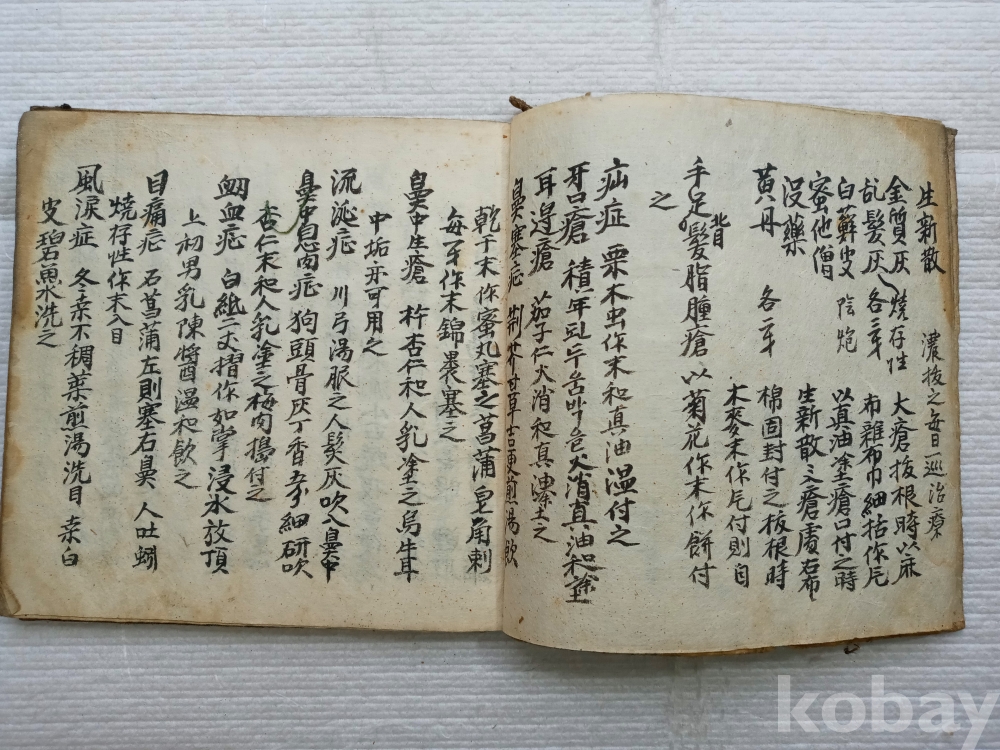 生新散 濃拔之每日一巡治療
金質灰 燒存性 大瘡拔根時以麻
乱髮灰 各二牙 布雜布巾細括作片
白蘚皮 陰炮 以真油塗瘡口付之時
蜜他僧 生新散之瘡處右布
沒藥 棉固封付之板根時
黃丹 各二牙 木麥末作片付則自
手足背髮脂腫瘡 以菊花作末作餅付
之
疝症 栗木虫作末和真油溫付之
牙口瘡 積年된두듬박을火消真油和塗
耳得瘡 茄子仁火消和真油塗土之
鼻塞症 荆芥甘草吉更煎湯飮
乾干末作蜜丸塞之菖蒲皂角刺
每一牙作末錦裹塞之
鼻中生瘡 杵杏仁和人乳塗之烏牛耳
中垢亦可用之
流涎症 川弓湯服之人髮灰吹入鼻中
鼻中息肉症狗頭骨灰丁香五分細研吹
杏仁末和人乳塗之梅肉搗付之
衂血症 白紙二丈摺作如掌浸水放頂
上初男乳陳醬酒溫和飮之
目痛症 石菖蒲左則塞右鼻 人吐蚓
燒存性作末入目
風淚症 冬桑不稠葉煎湯洗目 桑白
皮碧魚水洗之
kobay